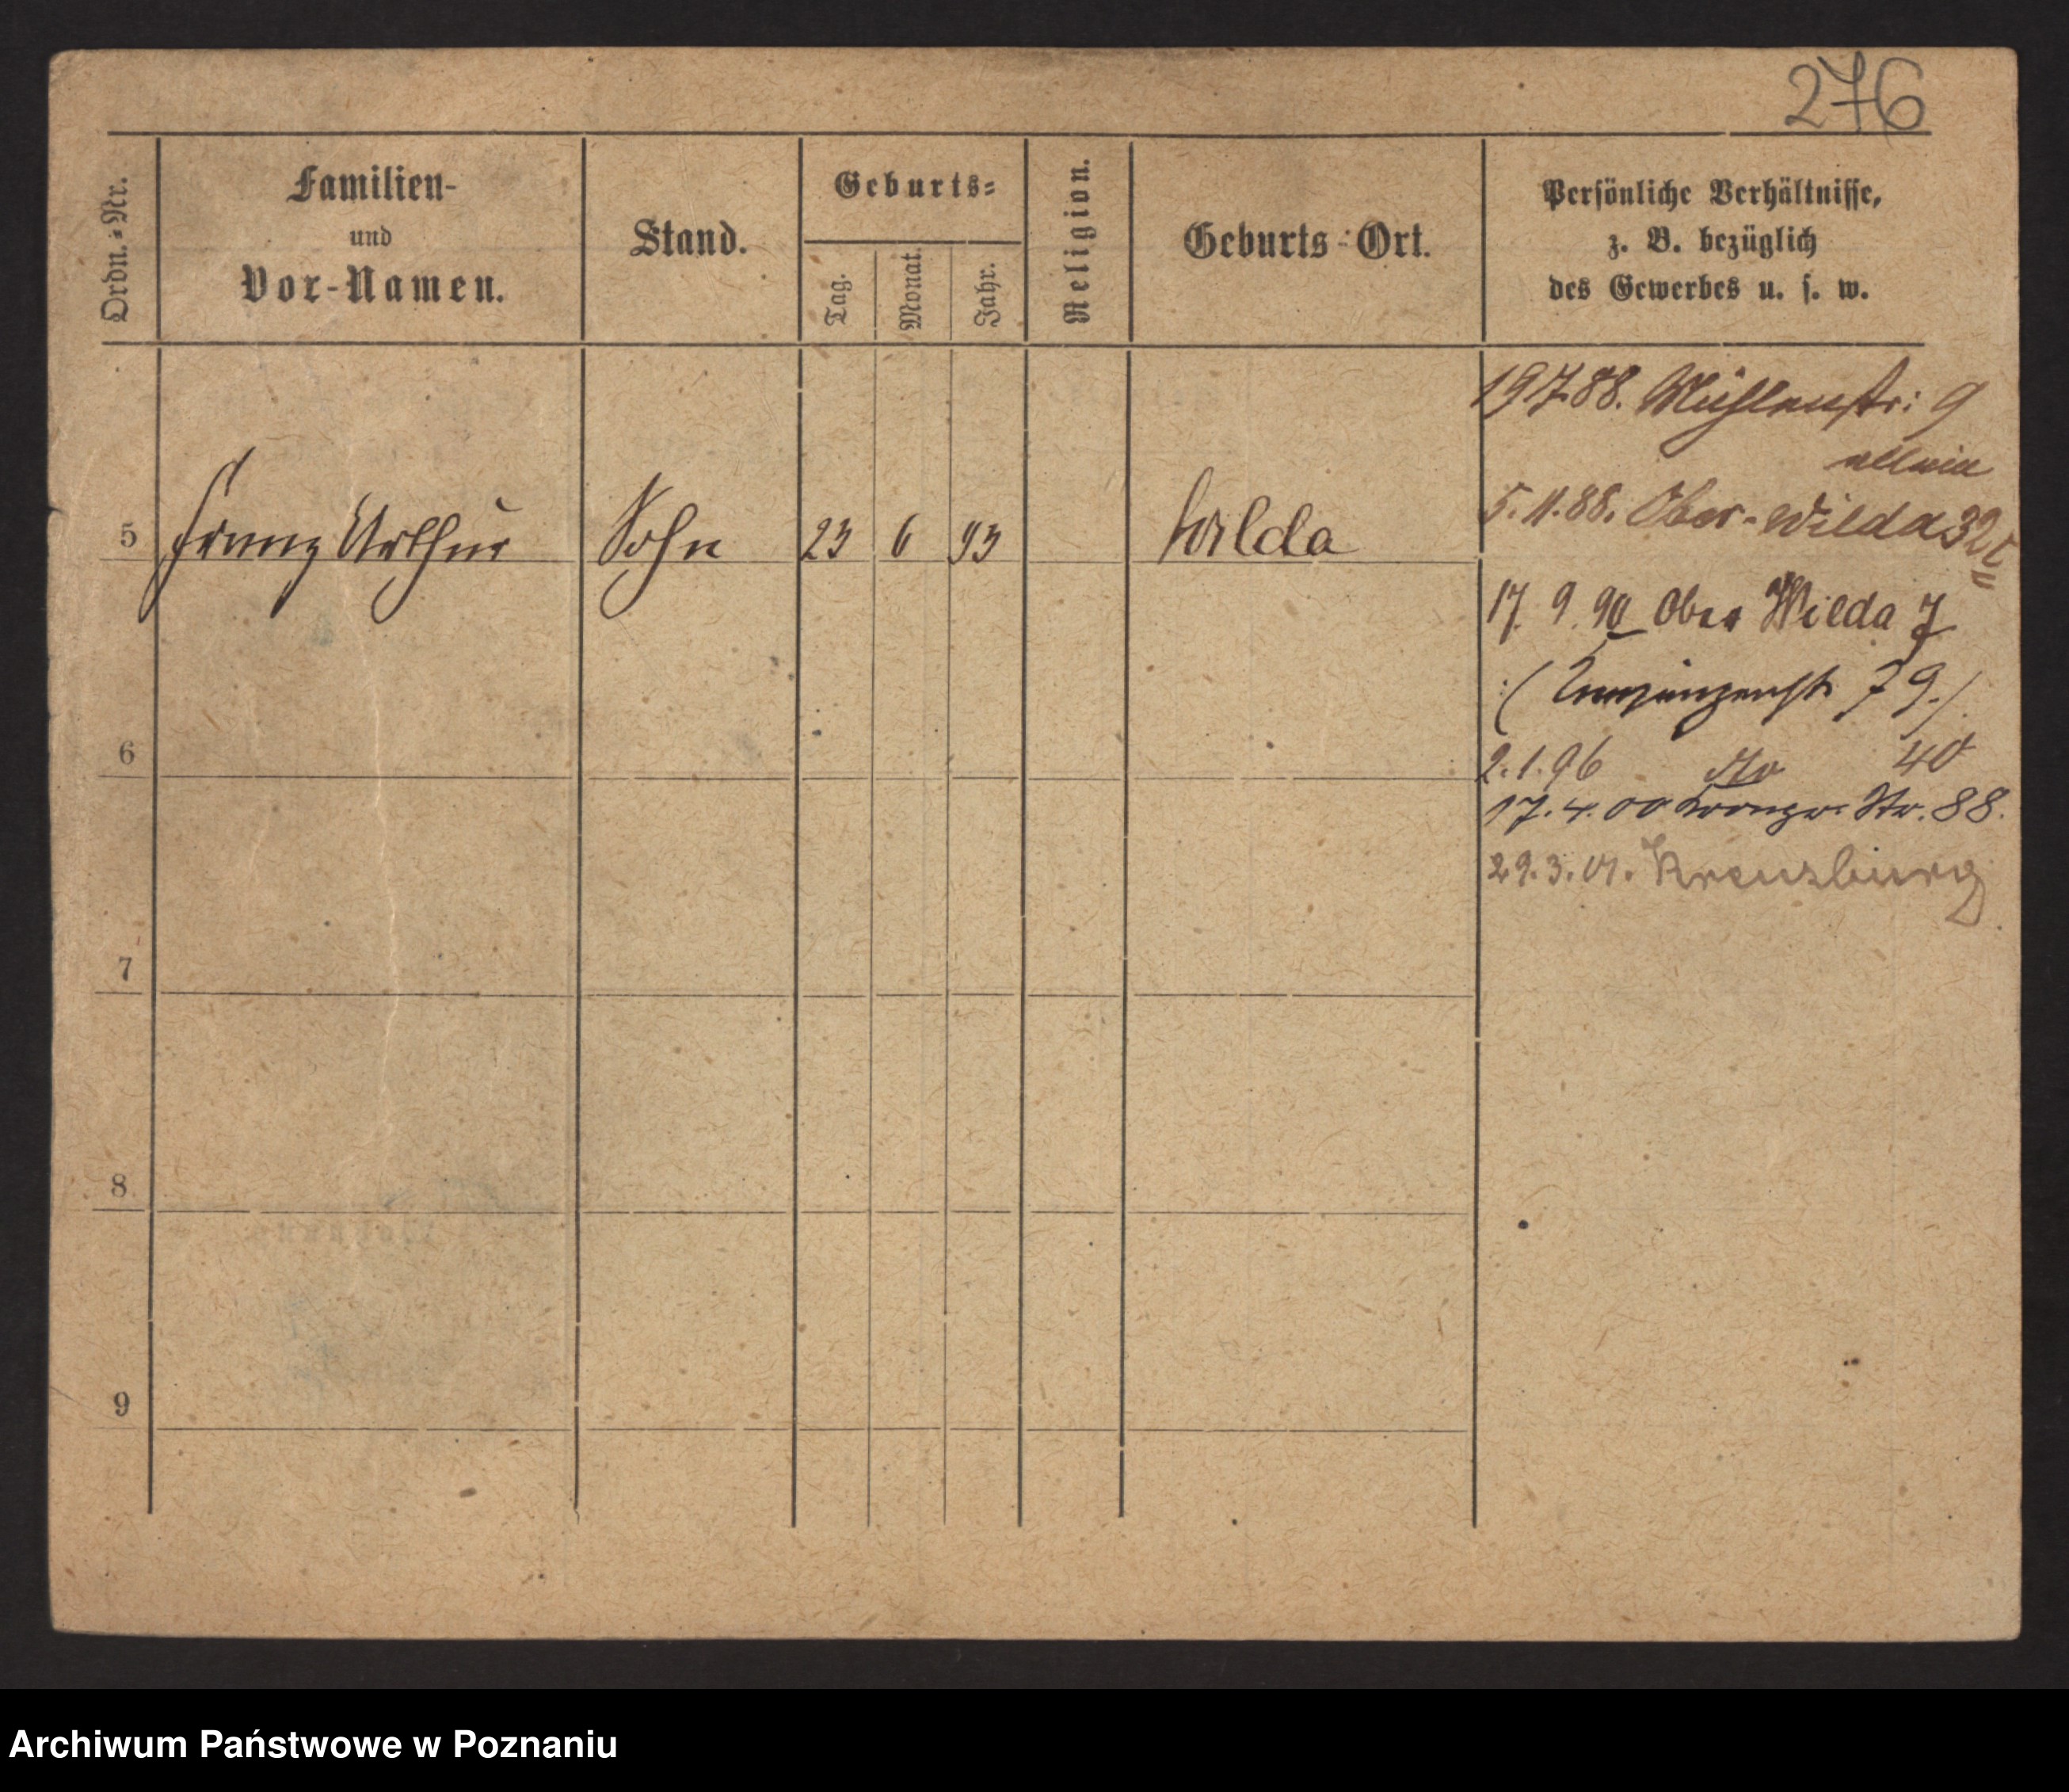 276
Ordn.-Nr.
Familien-
und
Vor-Namen.
Stand.
Geburts-
Tag.
Monat.
Jahr.
Religion.
Geburts-Ort.
Persönliche Verhältnisse,
z. B. bezüglich
des Gewerbes u. s. w.
19 7. 88. Mühlenstr: 9
allein
5 Franz Arthur Sohn 23 6 93 Wilda
5. 11. 88. Ober-Wilda 32
17. 9. 90 Ober Wilda 7
:( Kronprinzenst. 79./.
6
2. 1. 96 dto 40
17. 4. 00 Kronpr. Str. 88.
29. 3. 01. Kreuzburg
7
8
9
Archiwum Państwowe w Poznaniu